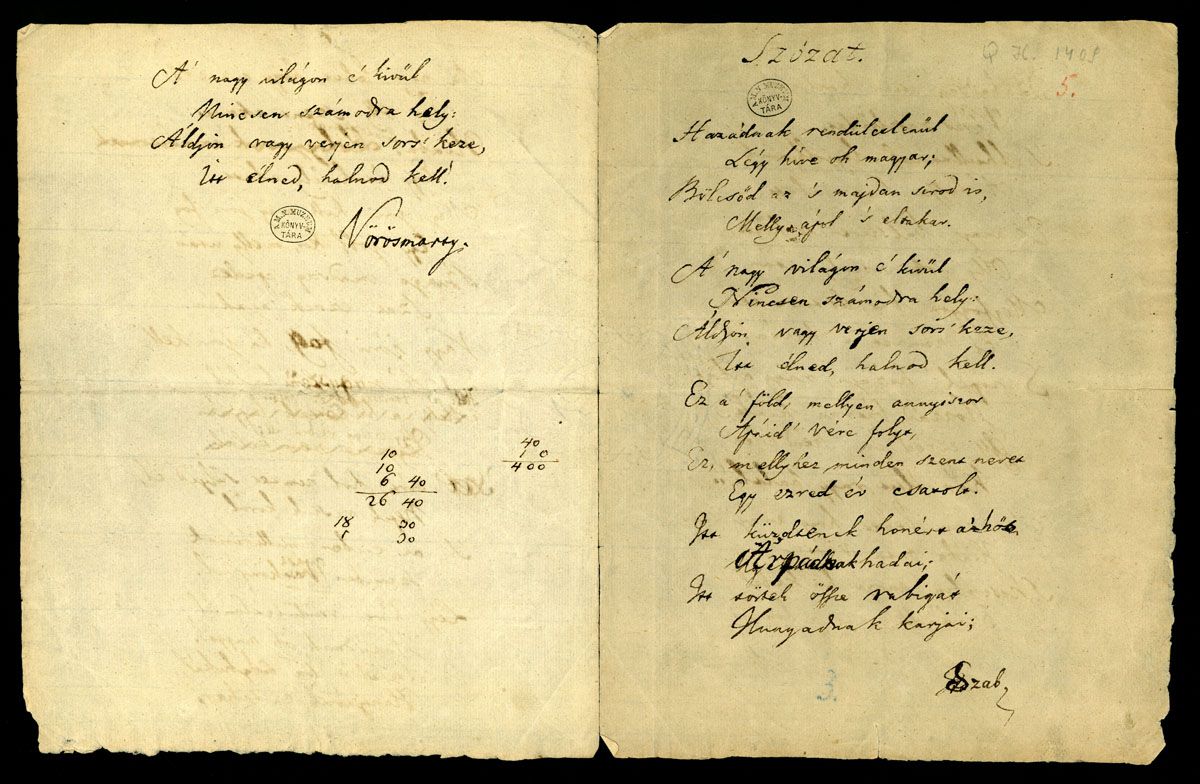 A' nagy világon é kivűl
Nincsen számodra hely:
Áldjon vagy verjen sors' keze,
Itt élned, halnod kell.
A. M. N. MUZEUM KÖNYVTÁRA
Vörösmarty.
10
10
6 40
26 40
18 30
30
40
10
400
Szózat.
Q H. 1409
5.
A. M. N. MUZEUM KÖNYVTÁRA
Hazádnak rendűletlenűl
Légy híve oh magyar;
Bölcsőd az 's majdan sírod is,
Melly ápol 's eltakar.
A' nagy világon é kivűl
Nincsen számodra hely:
Áldjon vagy verjen sors' keze,
Itt élned, halnod kell.
Ez a' föld, mellyen annyiszor
Apáid' vére folyt,
Ez, mellyhez minden szent nevet
Egy ezred év csatolt.
Itt küzdtenek honért a' hős
Árpádnak hadai;
Itt törtek össze rabigát
Hunyadnak karjai;
Szab